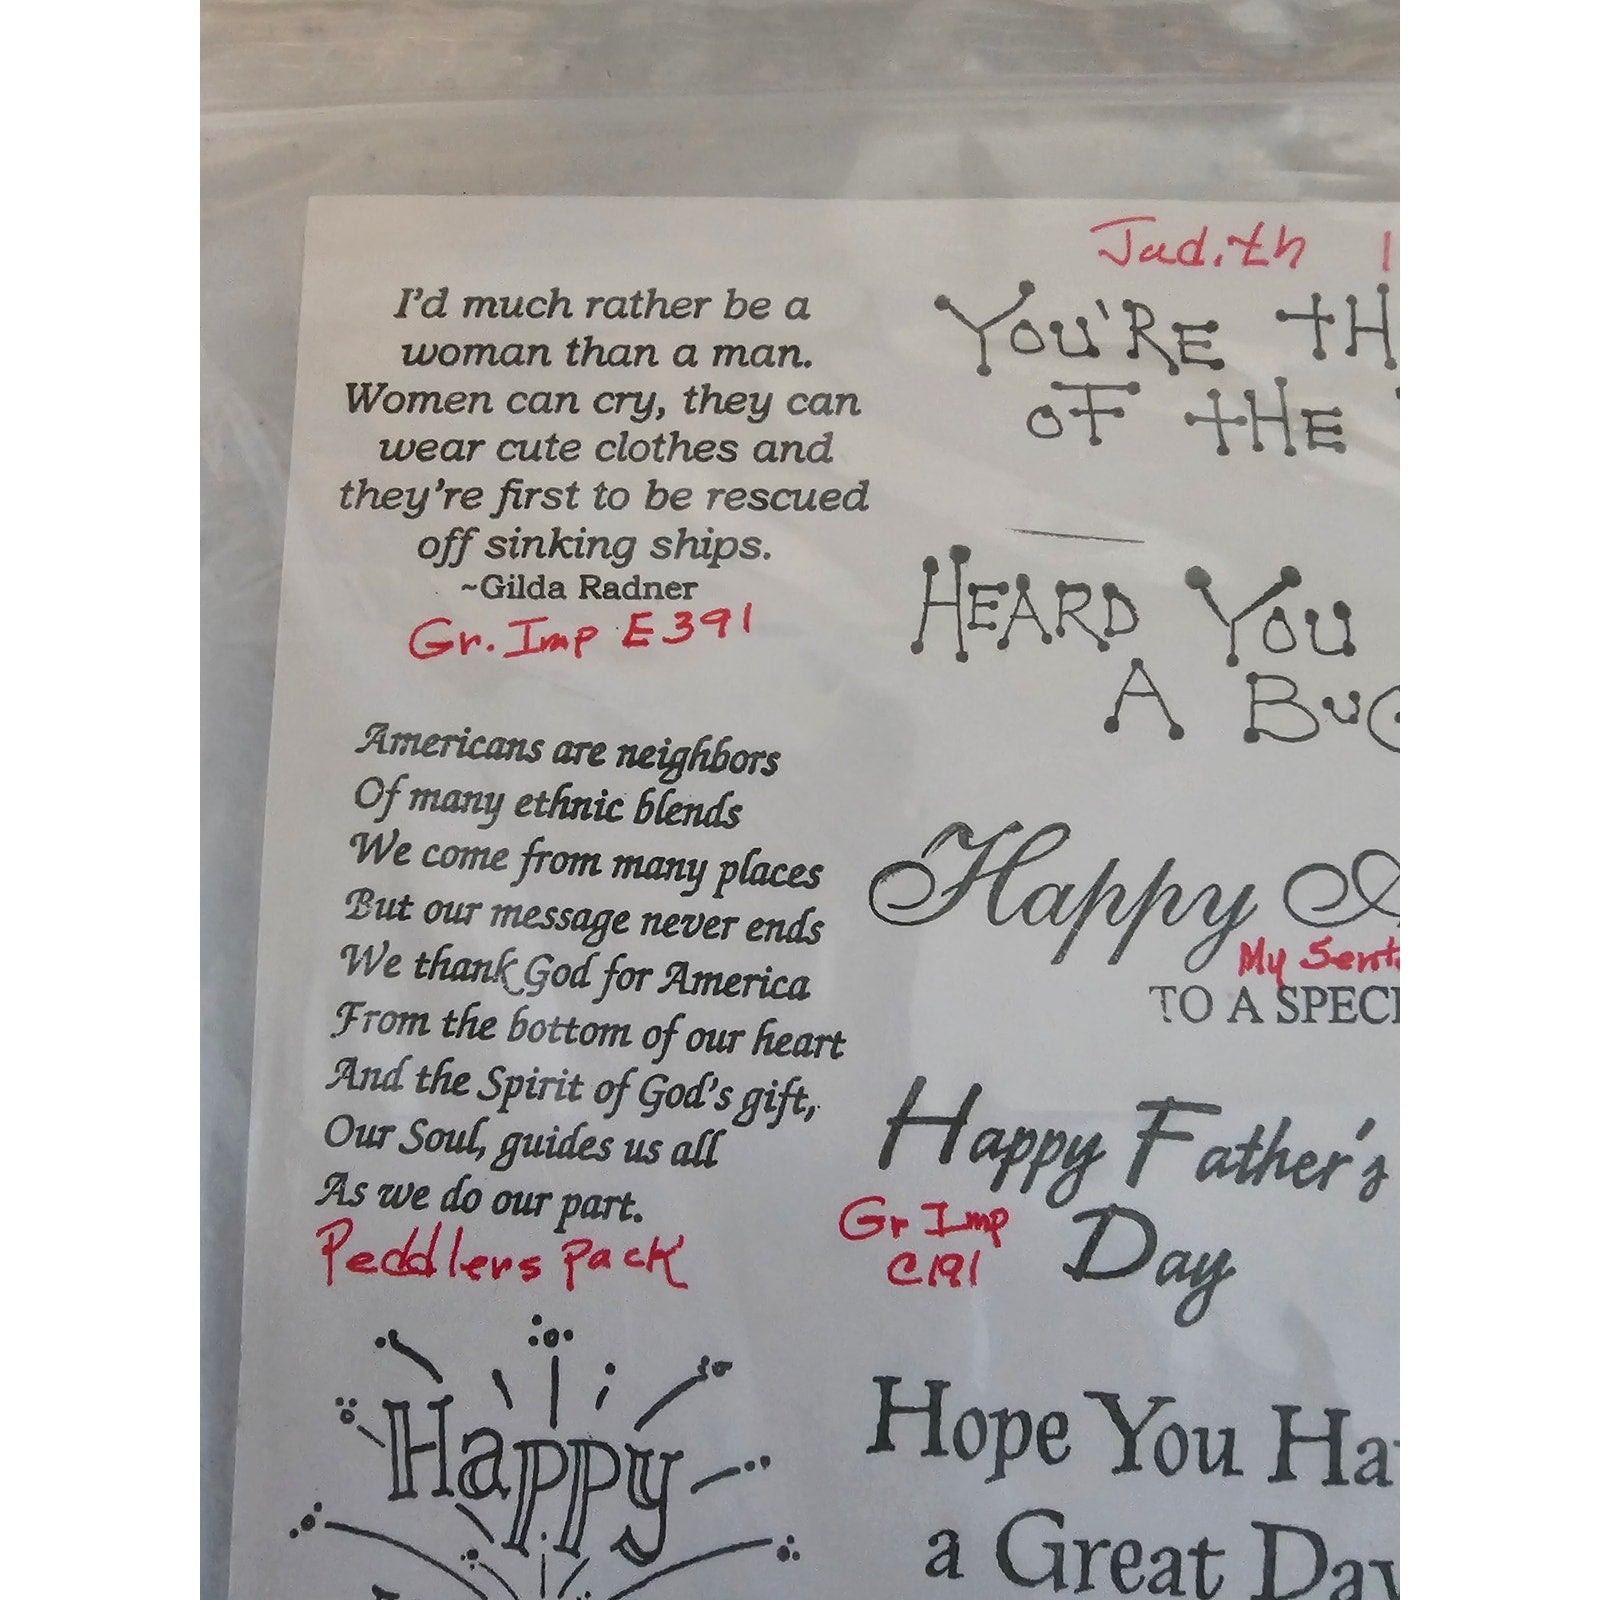 I'd much rather be a
woman than a man.
Women can cry, they can
wear cute clothes and
they're first to be rescued
off sinking ships.
~Gilda Radner
Gr. Imp E391
Americans are neighbors
Of many ethnic blends
We come from many places
But our message never ends
We thank God for America
From the bottom of our heart
And the Spirit of God's gift,
Our Soul, guides us all
As we do our part.
Peddlers Pack
Happy
Judith
YOU'RE
OF THE
HEARD YOU
A
Happy
My
TO A
Happy Father's
Day
Gr Imp
C191
Hope You
a Great